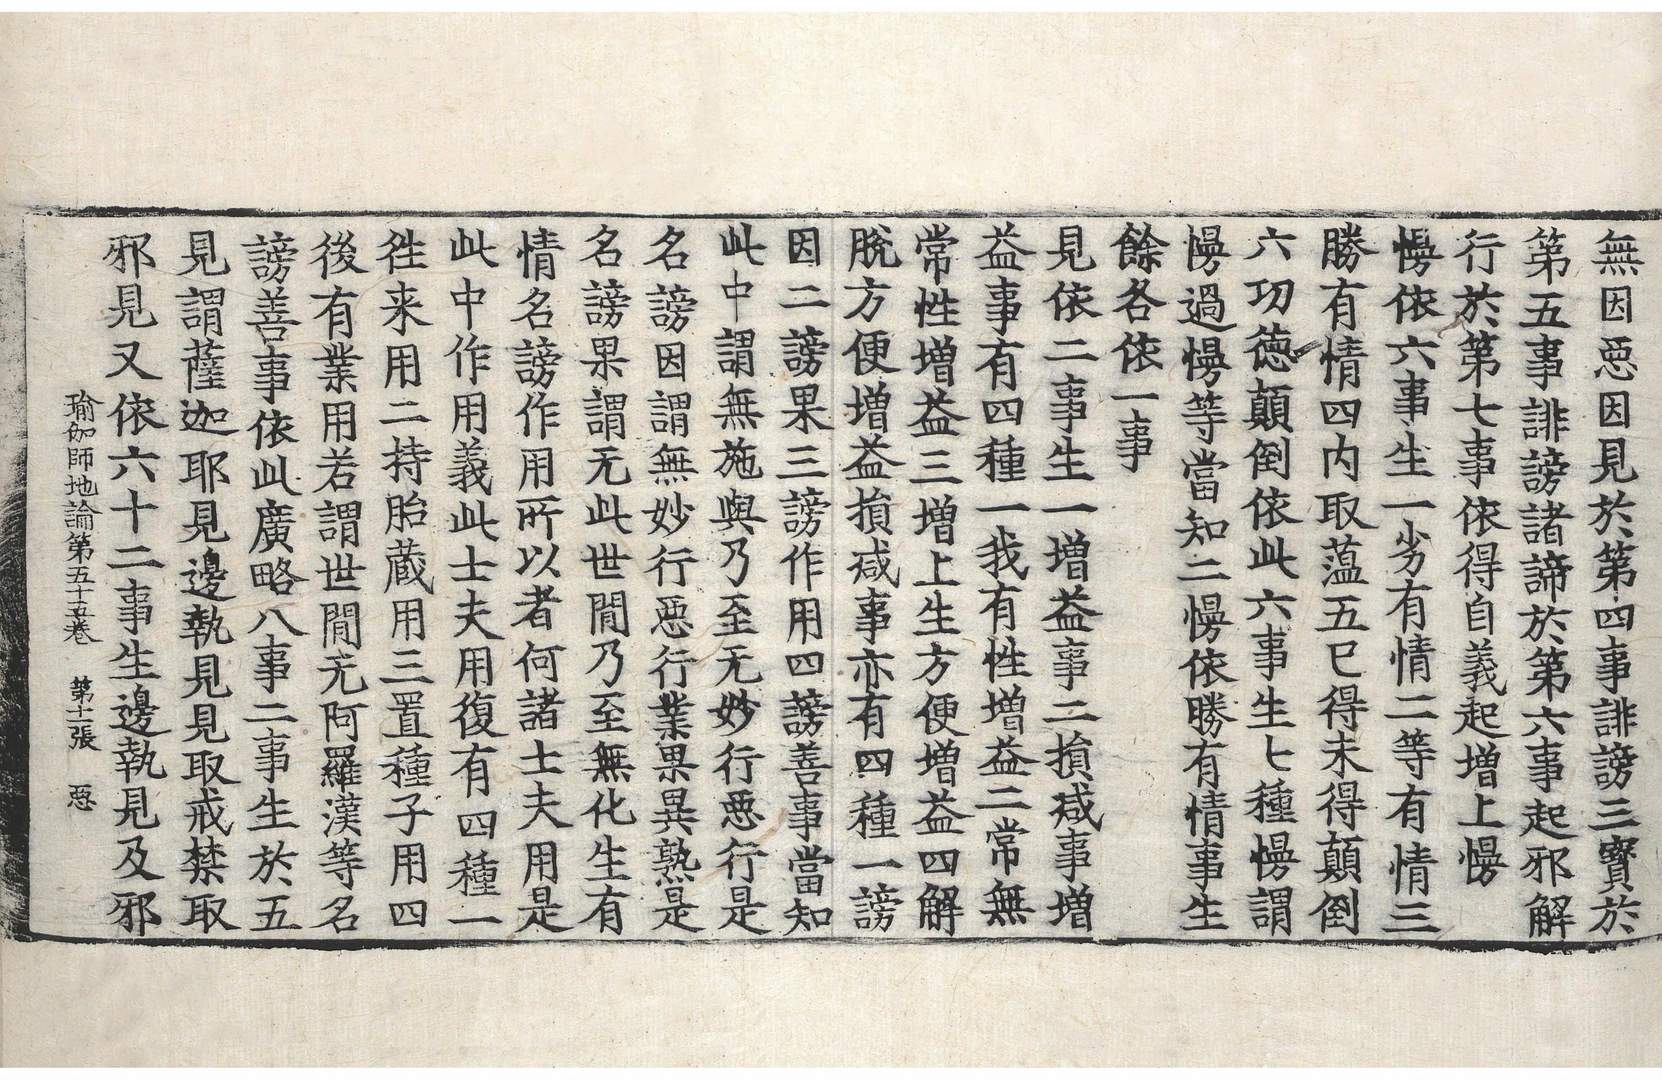 無因惡因見於第四事誹謗三寳於
第五事誹謗諸諦於第六事起邪解
行於第七事依得自義起增上慢
慢依六事生一劣有情二等有情三
勝有情四内取蕰五已得未得顛倒
六功德顛倒依此六事生七種慢謂
慢過慢等當知二慢依勝有情事生
餘各依一事
見依二事生一增益事二損减事增
益事有四種一我有性增益二常無
常性增益三增上生方便增益四解
脫方便增益損减事亦有四種一謗
因二謗果三謗作用四謗善事當知
此中謂無施與乃至无妙行惡行是
名謗因謂無妙行惡行業果異熟是
名謗果謂无此世間乃至無化生有
情名謗作用所以者何諸士夫用是
此中作用義此士夫用復有四種一
往来用二持胎藏用三置種子用四
後有業用若謂世間无阿羅漢等名
謗善事依此廣略八事二事生於五
見謂薩迦耶見邊執見見取戒禁取
邪見又依六十二事生邊執見及邪
瑜伽師地論第五十五卷 第十一張 惡